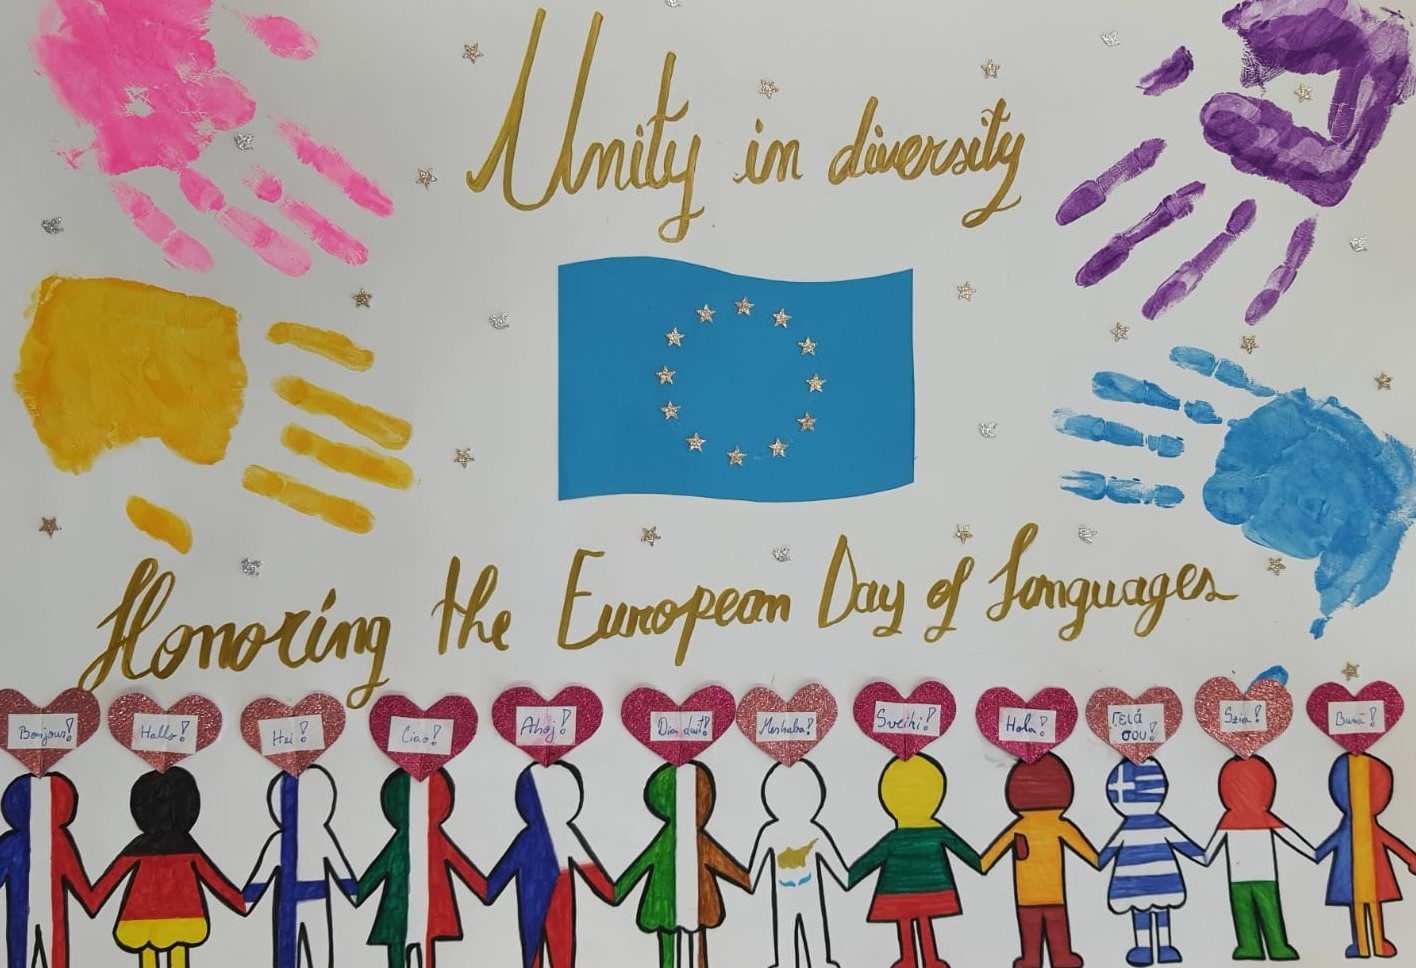 Unity in diversity
Honoring the European Day of Languages
Bonjour!
Hallo!
Hei!
Ciao!
Ahoj!
Dia duit!
Merhaba!
Sveiki!
Hola!
Γειά
σου!
Szia!
Bună!